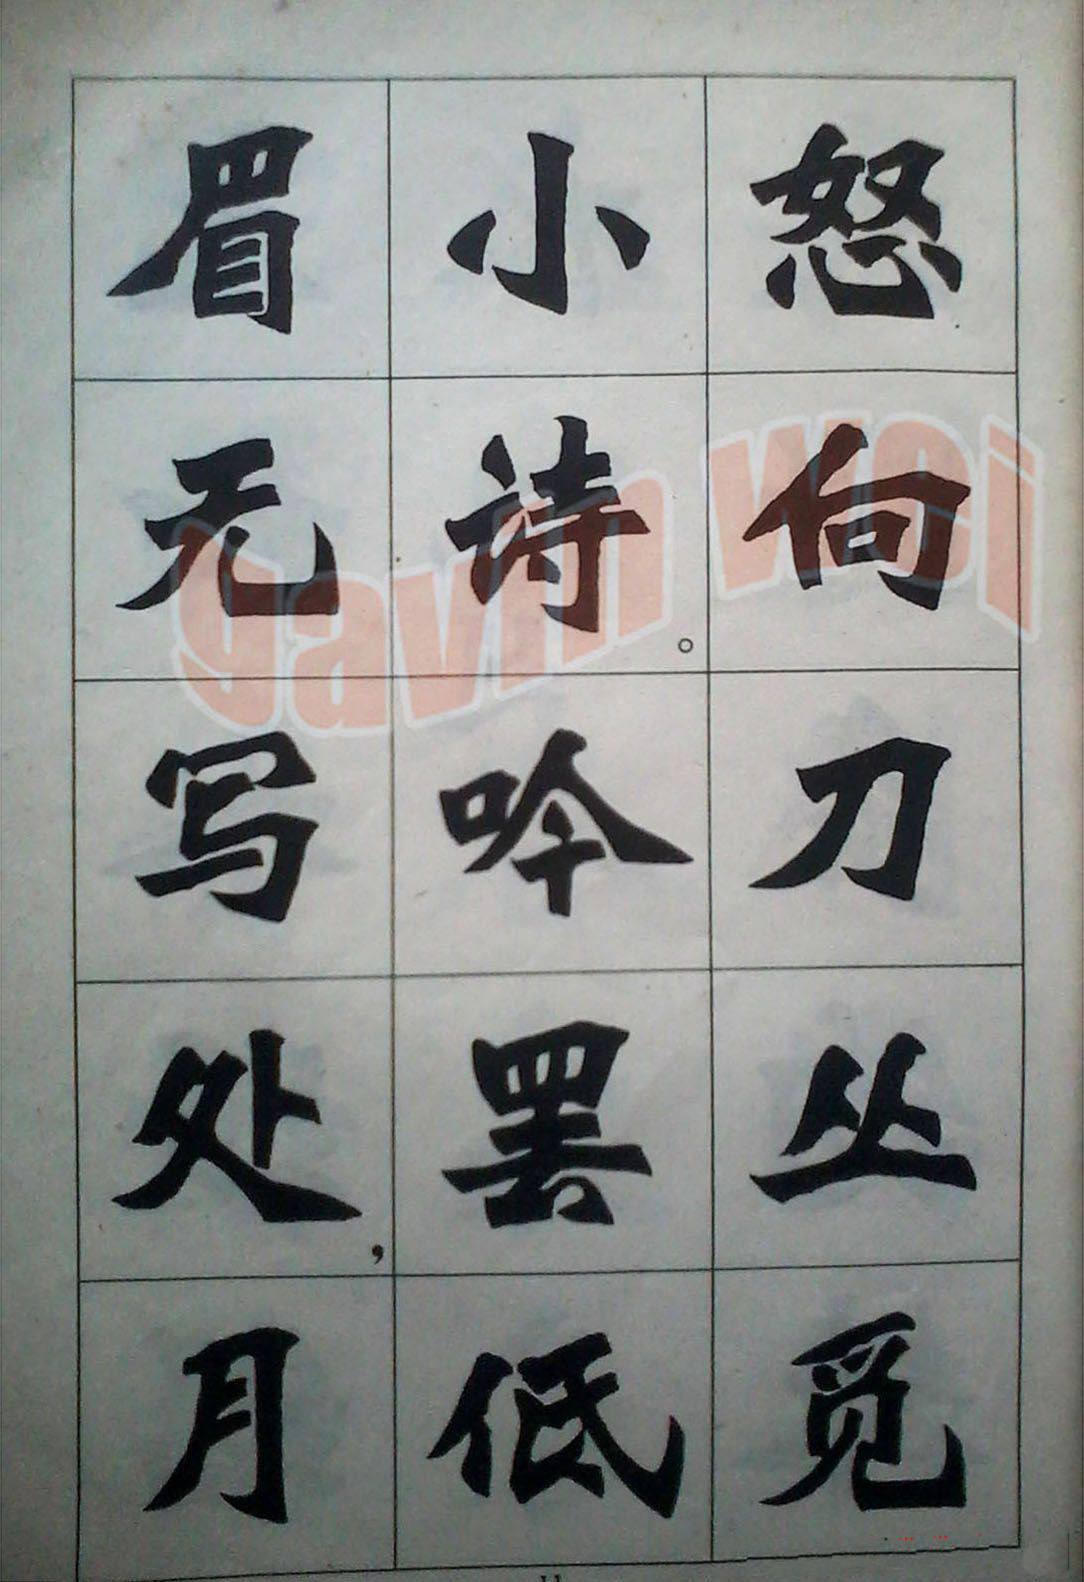 怒向刀丛觅
小诗。吟罢低
眉无写处，月
gavin wei